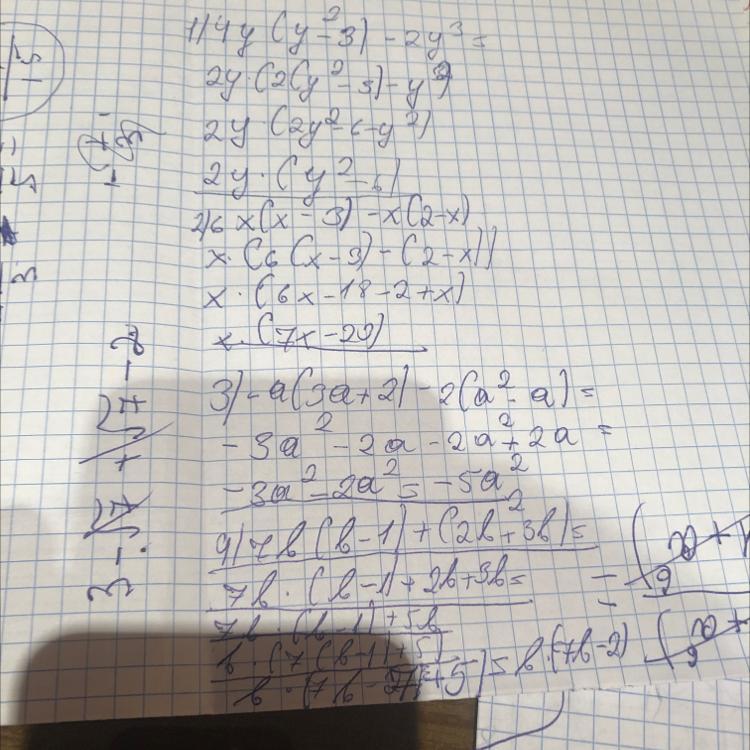 1) 4y (y²-3) - 2y³ =
2y·(2(y²-3)-y²)
2y·(2y²-6-y²)
2y·(y²-6)
2) 6x(x-3) - x(2-x)
x·(6(x-3)-(2-x))
x·(6x-18-2+x)
x·(7x-20)
3) -a(3a+2) - 2(a²-a) =
-3a²-2a-2a²+2a =
-3a²-2a² = -5a²
4) 7b(b-1)+(2b+3b)=
7b·(b-1)+2b+3b=
7b·(b-1)+5b
b·(7(b-1)+5)
b·(7b-7+5)=b·(7b-2)
3-√7+√7-2